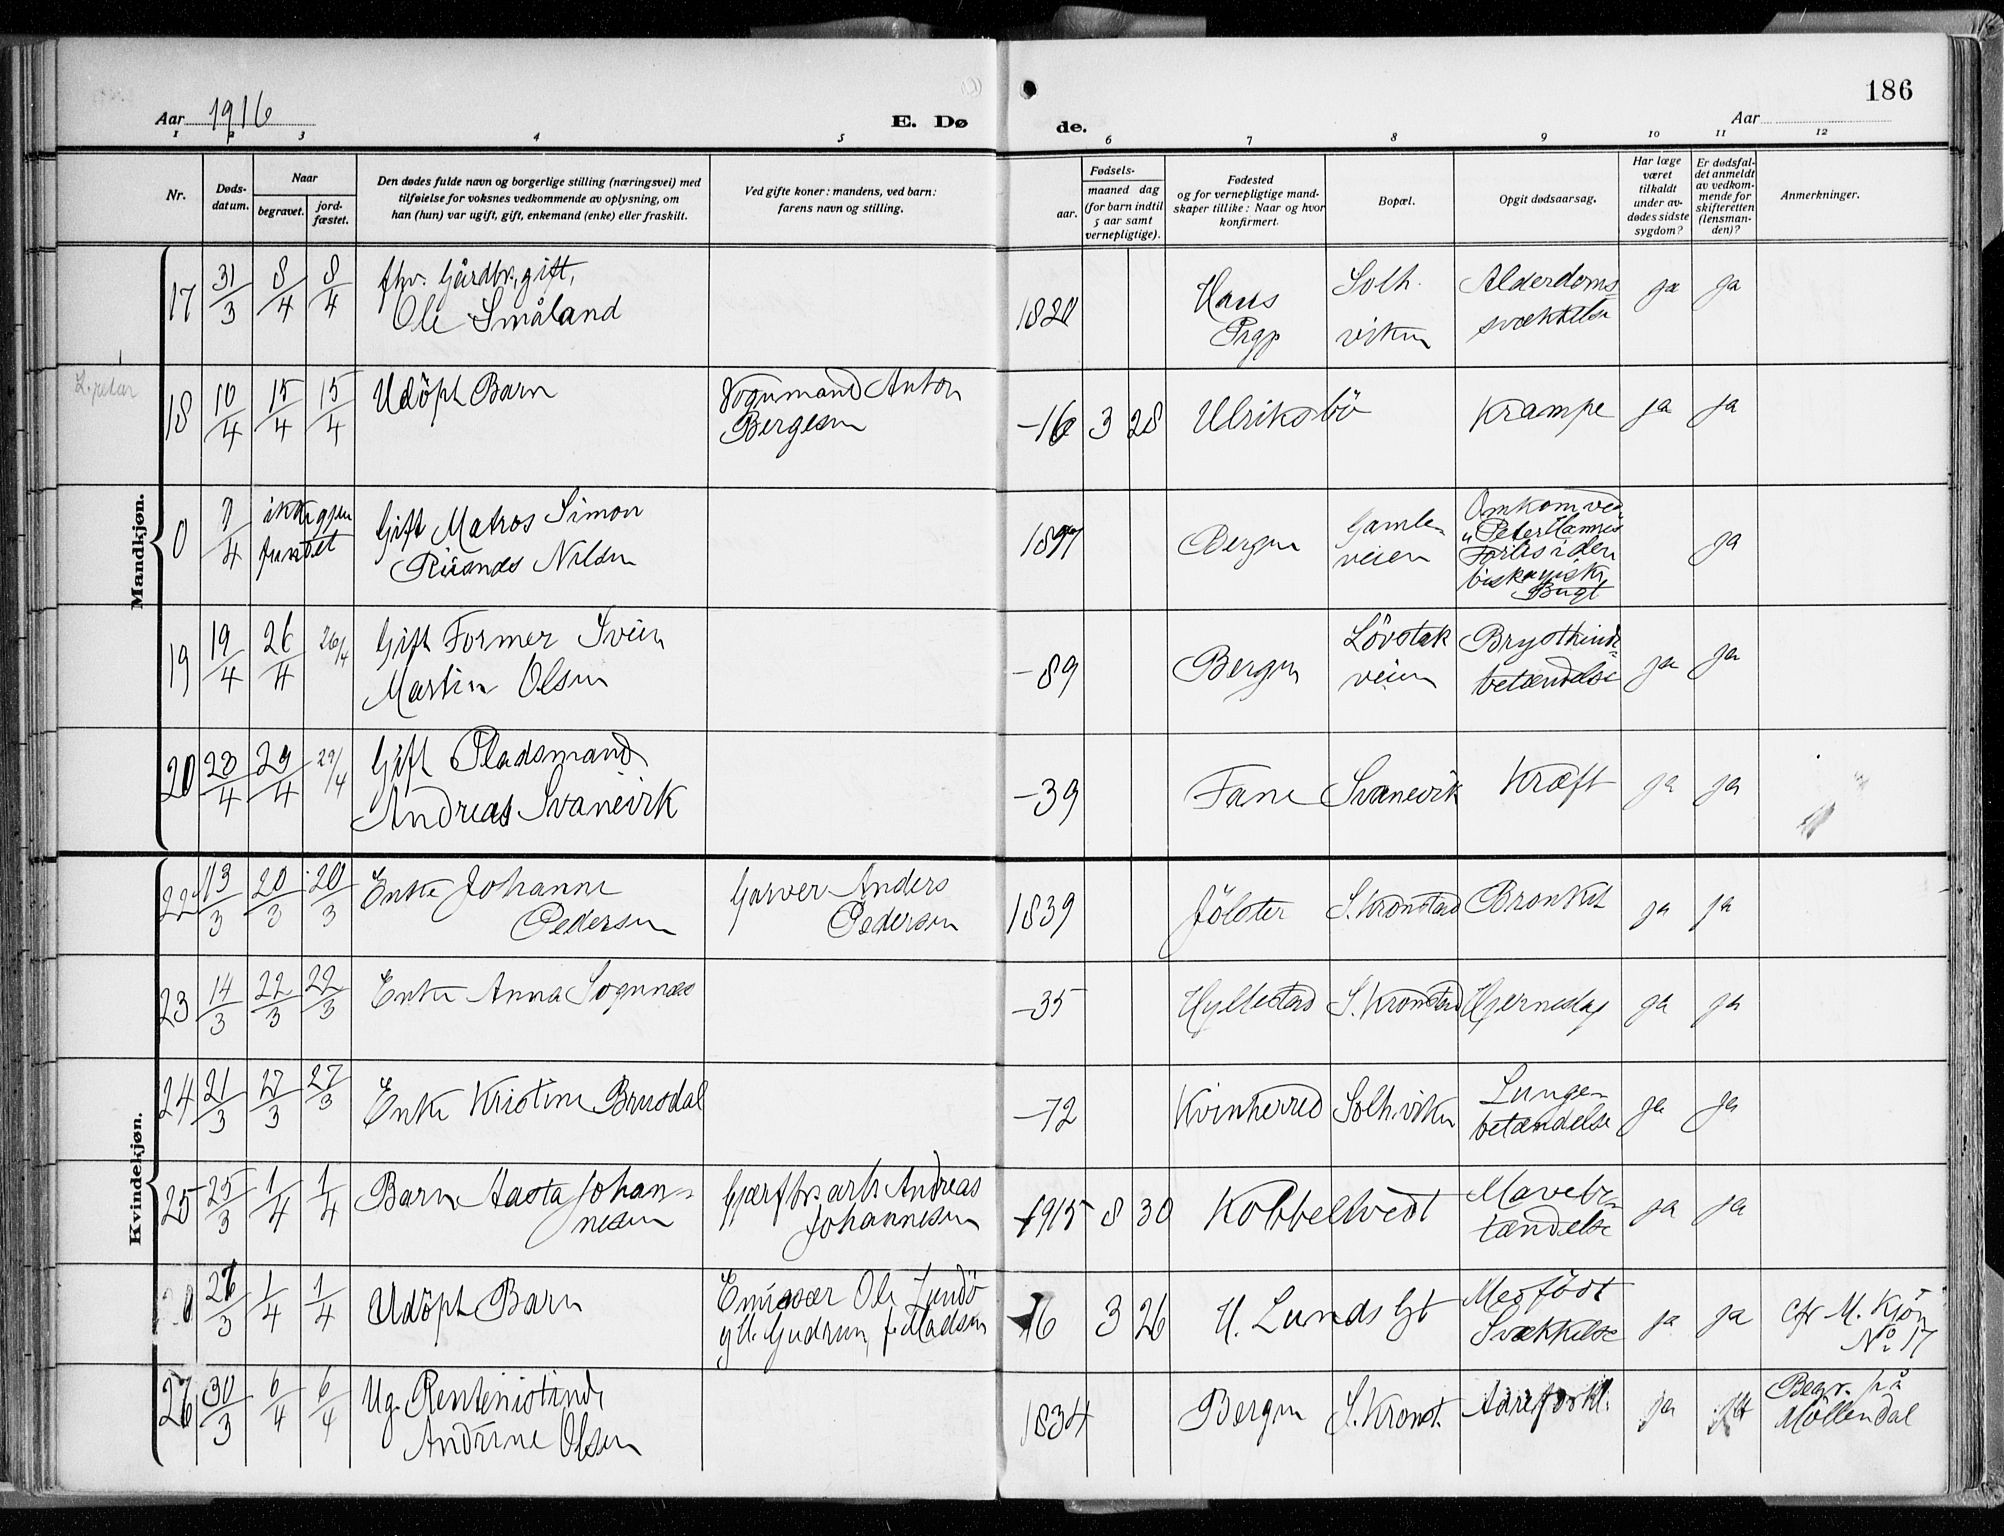 186
Aar 1916
E. Dø
de.
Aar
1 2 3 4 5 6 7 8 9 10 11 12
Nr.
Døds-
datum.
Naar
begravet.
jord-
fæstet.
Den dødes fulde navn og borgerlige stilling (næringsvei) med
tilføielse for voksnes vedkommende av oplysning, om
han (hun) var ugift, gift, enkemand (enke) eller fraskilt.
Ved gifte koner: mandens, ved barn:
farens navn og stilling.
aar.
Fødsels-
maaned dag
(for barn indtil
5 aar samt
vernepligtige).
Fødested
og for vernepligtige mand-
skaper tillike: Naar og hvor
konfirmert.
Bopæl.
Opgit dødsaarsag.
Har læge
været
tilkaldt
under av-
dødes sidste
sygdom?
Er dødsfal-
det anmeldt
av vedkom-
mende for
skifteretten
(lensman-
den)?
Anmerkninger.
Mandkjøn.
17 31/3 8/4 8/4 fhv. Gårdbr., gift,
Ole Småland
Haus
Prgp
Solh.
viken
Alderdoms-
svækkelse
ja ja
18 10/4 15/4 15/4 Udöpt Barn
Vognmand Anton
Bergesen
-16 3 28 Ulriksbö Krampe ja ja
0 7/4 ikke gjen
fundet
Gift Matros Simon
Nilsen
1897 Bergen
Gamle-
veien
Omkom ved
"Peter Hamres
Forlis i den
biskayiske
Bugt
ja
19 19/4 26/4 26/4 Gift Former Svein
Martin Olsen
-89 Bergen
Lövstak
veien
Brysthinde-
betændelse
ja ja
20 23/4 29/4 29/4 Gift Pladsmand
Andreas Svanevik
-39 Fane Svanevik Kræft ja ja
Kvindekjøn.
22 13/3 20/3 20/3 Enke Johanne
Pedersen
Garver Anders
Pedersen
1839 Jölster S. Kronstad Bronkit ja ja
23 14/3 22/3 22/3 Enke Anna Sognnæs
-35 Hyllestad S. Kronstad Hjerneslag ja ja
24 21/3 27/3 27/3 Enke Kristine Brusdal
-72 Kvinherred Solh.viken
Lunge-
betændelse
ja ja
25 25/3 1/4 1/4 Barn Aasta Johan-
nesen
Andreas
Johannesen
1915 8 30 Kobbeltvedt
Mavebe-
tændelse
ja ja
26/3 1/4 1/4 Udöpt Barn
Emissær Ole Sundö
Gudrun, f. Madsen
-16 3 26 H. Lunds Gt
Medfödt
Svækkelse
ja ja
Cfr M. Kjön
No 17
26 30/3 6/4 6/4 Ug. Rentenistinde
Andrine Olsen
1834 Bergen S. Kronst. Aareforkl. ja
Begr. på
Möllendal